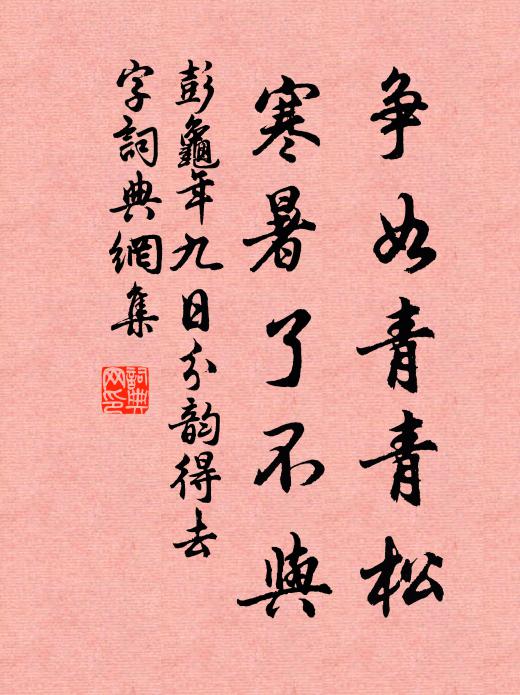 争如青青松
寒暑了不與
彭龜年九日分韵得去
字詞典網集
詞典網印